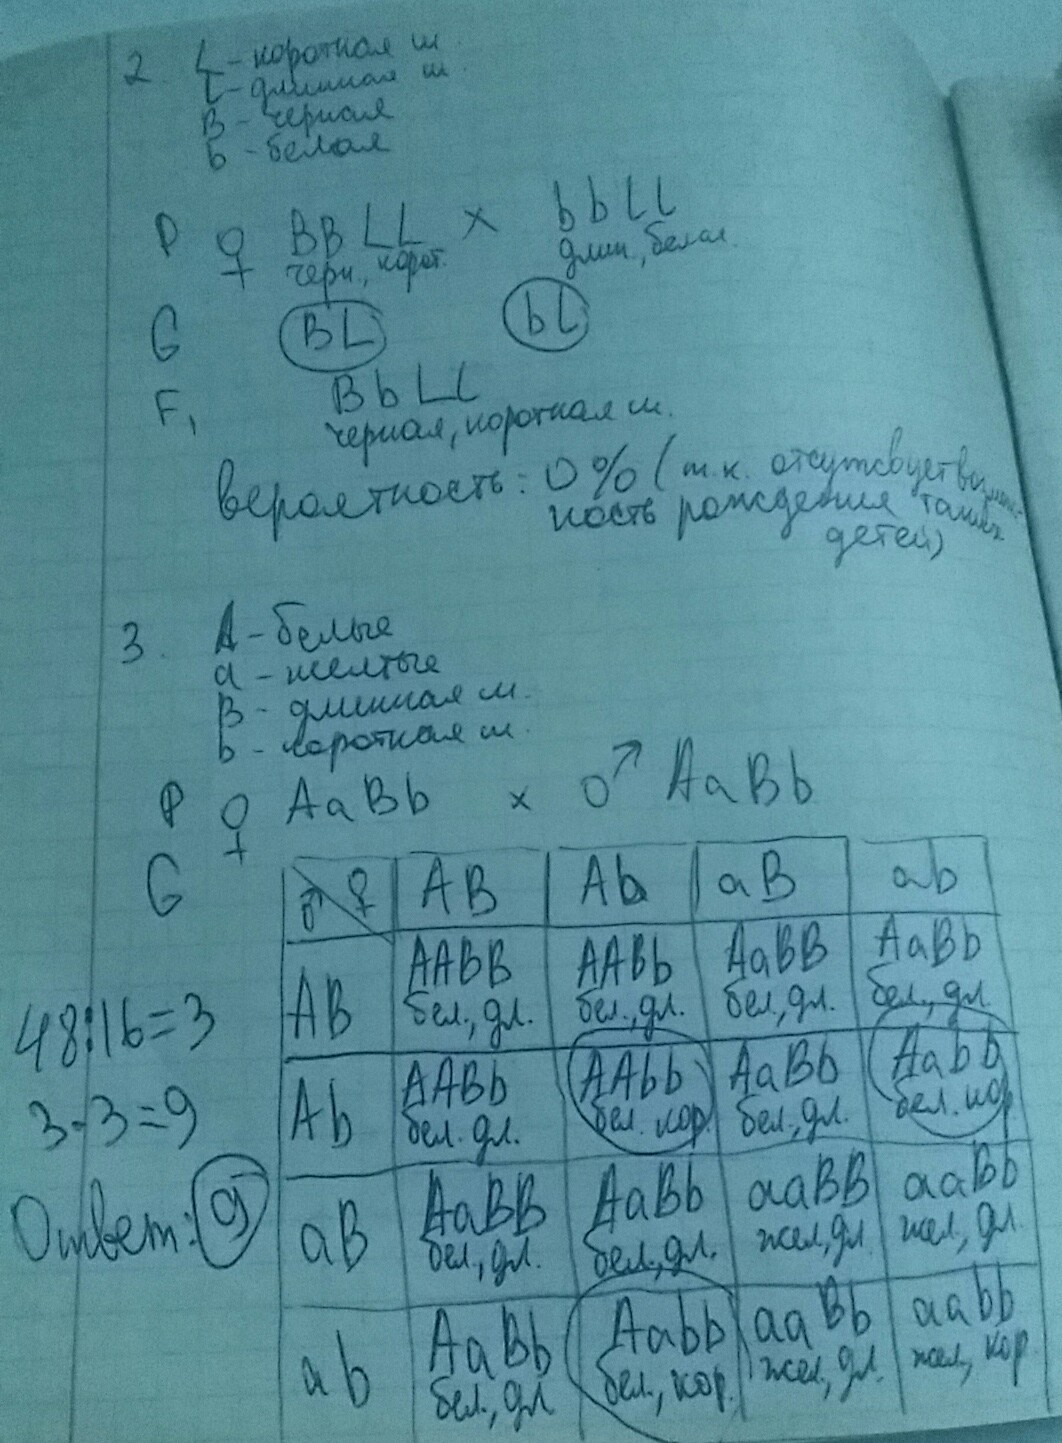 2. L - короткая ш.
l - длинная ш.
B - черная
b - белая
P ♀ BB LL × bb ll
черн., корот. длин., белая.
G BL bl
F₁ Bb Ll
черная, короткая ш.
вероятность: 0% (т.к. отсутсвует возмож-
ность рождения таких
детей)
3. A - белые
a - желтые
B - длинная ш.
b - короткая ш.
P ♀ AaBb × ♂ AaBb
G ♂ ♀ AB Ab aB ab
AB AABB AABb AaBB AaBb
бел., дл. бел., дл. бел., дл. бел., дл.
48:16=3
Ab AABb AAbb AaBb Aabb
бел. дл. бел. кор. бел., дл. бел. кор
3·3=9
aB AaBB AaBb aaBB aaBb
бел., дл. бел., дл. жел, дл. жел, дл.
Ответ: 9
ab AaBb Aabb aaBb aabb
бел., дл бел., кор. жел., дл. жел., кор.